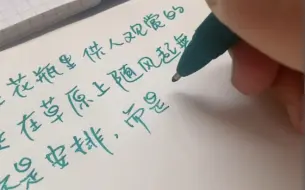 花瓶里供人观赏的
在草原上随风起舞
不是安排，而是